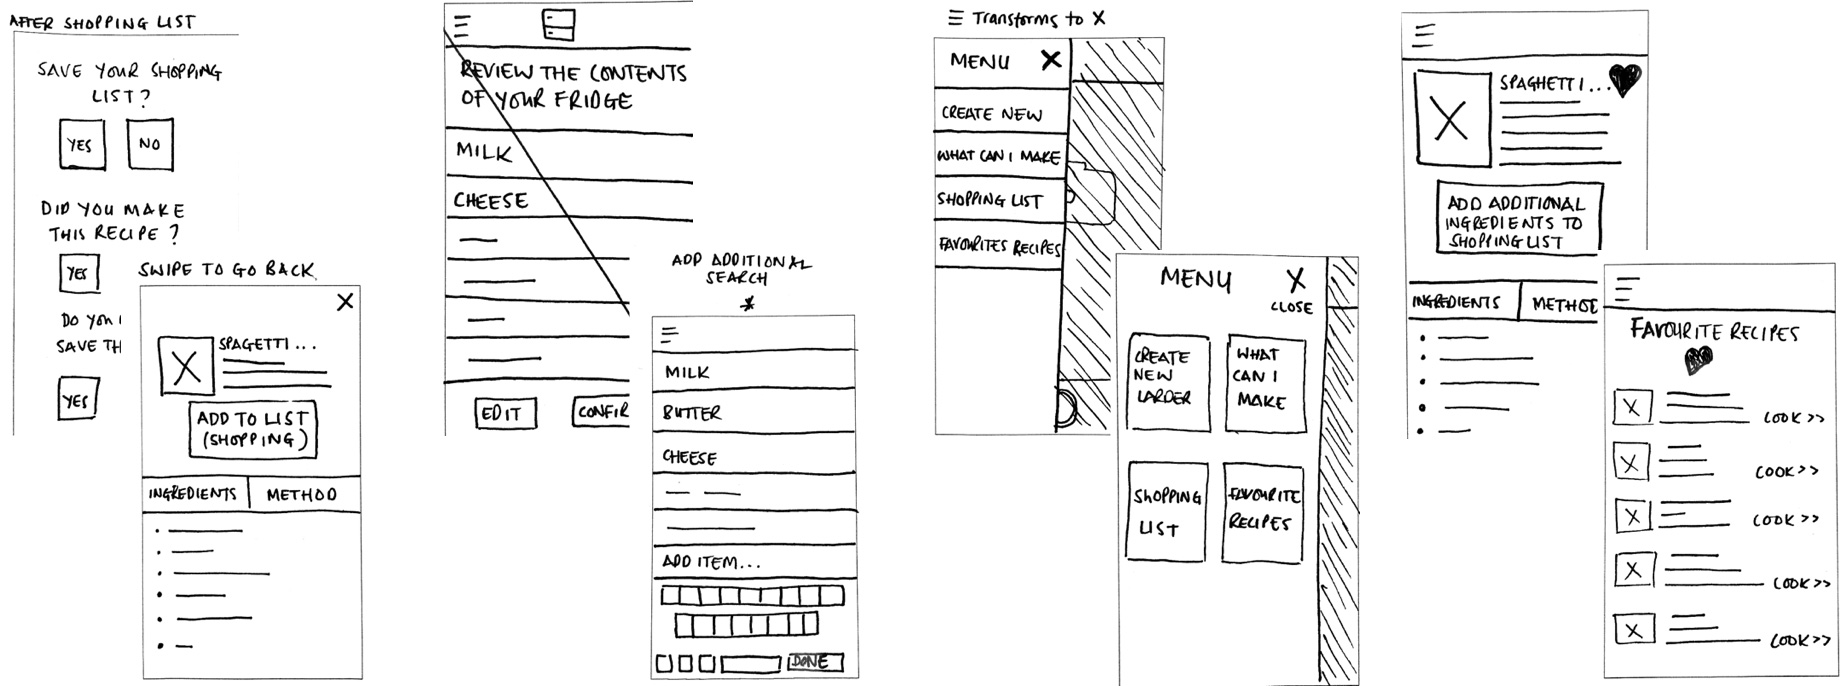 AFTER SHOPPING LIST
SAVE YOUR SHOPPING
LIST?
YES
NO
DID YOU MAKE
THIS RECIPE?
YES
DO YOU
SAVE TH
YES
SWIPE TO GO BACK
X
SPAGETTI...
ADD TO LIST
(SHOPPING)
INGREDIENTS
METHOD
REVIEW THE CONTENTS
OF YOUR FRIDGE
MILK
CHEESE
EDIT
CONFIR
ADD ADDITIONAL
SEARCH
*
MILK
BUTTER
CHEESE
ADD ITEM...
DONE
☰ Transforms to X
MENU X
CREATE NEW
WHAT CAN I MAKE
SHOPPING LIST
FAVOURITES RECIPES
MENU X
CLOSE
CREATE
NEW
LARDER
WHAT
CAN I
MAKE
SHOPPING
LIST
FAVOURITE
RECIPES
SPAGHETTI...
ADD ADDITIONAL
INGREDIENTS TO
SHOPPING LIST
INGREDIENTS
METHOD
FAVOURITE RECIPES
LOOK>>
LOOK>>
LOOK>>
LOOK>>
LOOK>>